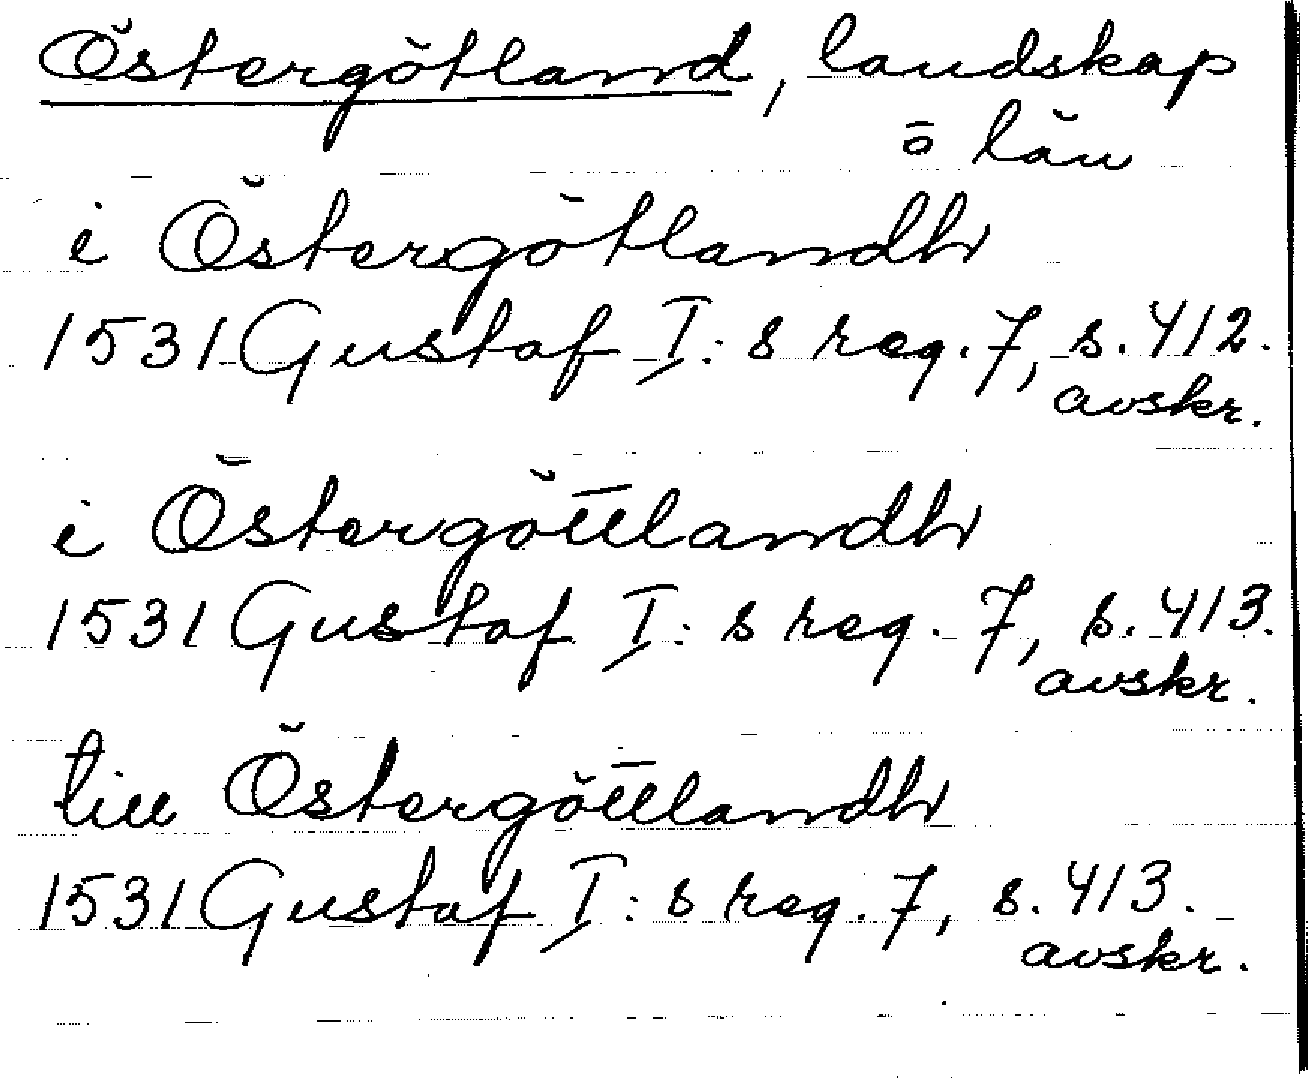 Östergötland, landskap
o län
i Östergötlandh
1531 Gustaf I:s reg. 7, s. 412.
avskr.
i Östergöttlandh
1531 Gustaf I:s reg. 7, s. 413.
avskr.
till Östergöttlandh
1531 Gustaf I:s reg. 7, s. 413.
avskr.